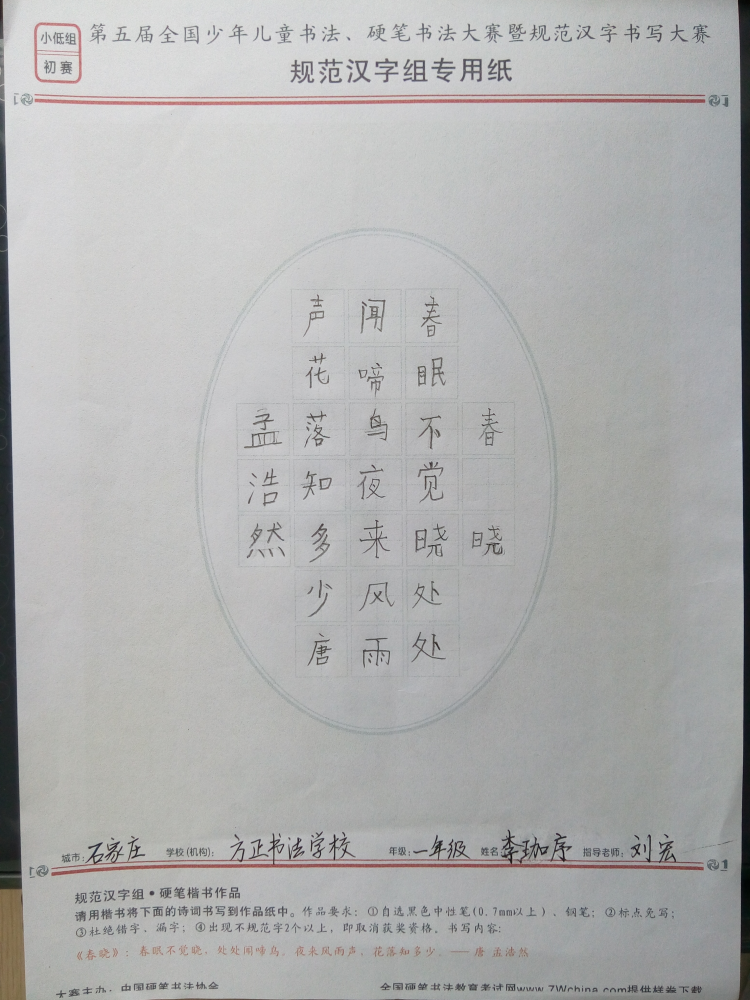 小低组
初赛
第五届全国少年儿童书法、硬笔书法大赛暨规范汉字书写大赛
规范汉字组专用纸
春晓
春眠不觉晓处处
闻啼鸟夜来风雨
声花落知多少唐
孟浩然
城市：石家庄 学校(机构)：方正书法学校 年级：一年级 姓名：李珈序 指导老师：刘宏
规范汉字组•硬笔楷书作品
请用楷书将下面的诗词书写到作品纸中。作品要求：①自选黑色中性笔(0.7mm以上)、钢笔；②标点免写；
③杜绝错字、漏字；④出现不规范字2个以上，即取消获奖资格。书写内容：
《春晓》：春眠不觉晓，处处闻啼鸟。夜来风雨声，花落知多少。——唐 孟浩然
大赛主办：中国硬笔书法协会 全国硬笔书法教育考试网www.7Wchina.com提供样卷下载